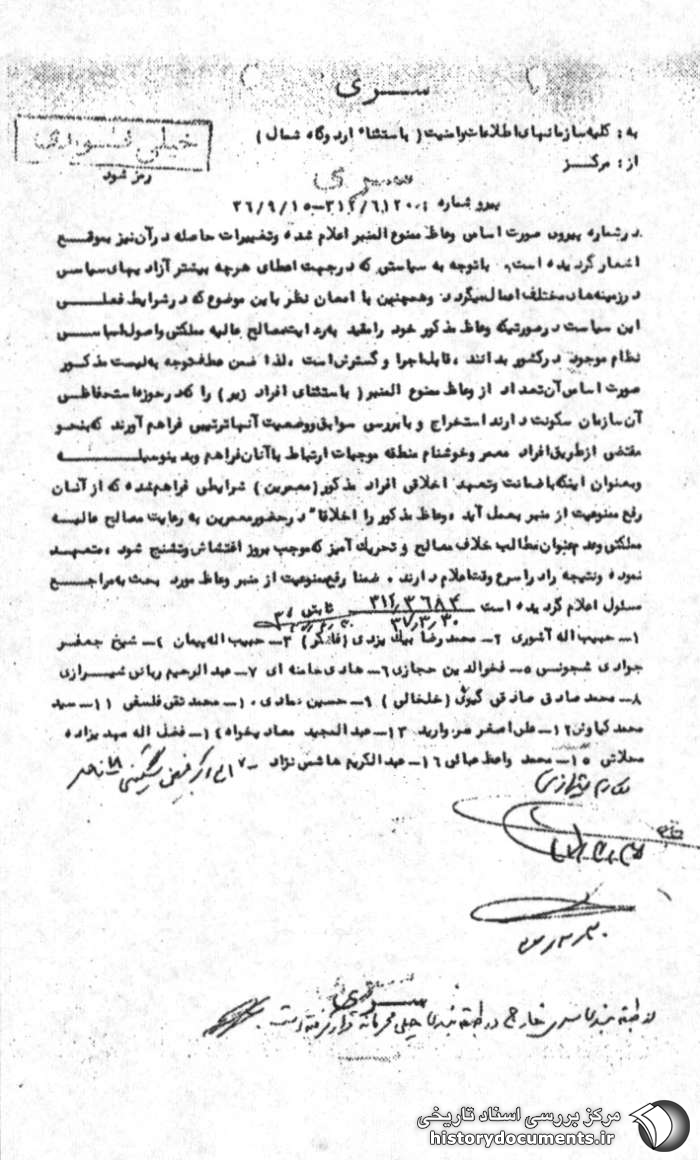 سری
به : کلیه سازمانهای اطلاعات و امنیت ( باستثناء اردوگاه شمال )
خیلی فوری
از : مرکز
رمز شود
سری
پیرو شماره : ۳۱۲/۶۱۲۰ - ۳۶/۹/۱۵
در شماره پیروی صورت اسامی وعاظ ممنوع المنبر اعلام شده و تغییرات حاصله در آن نیز بموقع
اشعار گردیده است . باتوجه به سیاستی که در جهت اعطای هرچه بیشتر آزادیهای سیاسی
در زمینه های مختلف اعمال میگردد و همچنین با امعان نظر باین موضوع که در شرایط فعلی
این سیاست در صورتیکه وعاظ مذکور خود را مقید به رعایت مصالح عالیه مملکتی و اصول اساسی
نظام موجود در کشور بدانند ، قابل اجرا و گسترش است ، لذا ضمن عطف توجه به لیست مذکور
صورت اسامی آن تعداد از وعاظ ممنوع المنبر ( باستثنای افراد زیر ) را که در حوزه استحفاظی
آن سازمان سکونت دارند استخراج و با بررسی سوابق و وضعیت آنها ترتیبی فراهم آورند که بنحو
مقتضی از طریق افراد معمر و خوشنام منطقه موجبات ارتباط با آنان فراهم و بدینوسیله
و بعنوان اینکه با ضمانت و تعهد اخلاقی افراد مذکور ( معمرین ) شرایطی فراهم شده که از آنان
رفع ممنوعیت از منبر بعمل آید ، وعاظ مذکور را اخلاقا" در حضور معمرین به رعایت مصالح عالیه
مملکتی و عدم عنوان مطالب خلاف مصالح و تحریک آمیز که موجب بروز اغتشاش و تشنج شود ، متعهد
نموده و نتیجه را در اسرع وقت اعلام دارند . ضمنا رفع ممنوعیت از منبر وعاظ مورد بحث به مراجع
مسئول اعلام گردیده است ۳۱۲/۳۶۸۴ ثابتی
۳۷/۳/۳۰
۱- حبیب اله آشوری ۲- محمد رضا بیک یزدی ( فاکر ) ۳- حبیب اله پیمان ۴- شیخ جعفر
جوادی شجونی ۵- فخرالدین حجازی ۶- هادی خامنه ای ۷- عبدالرحیم ربانی شیرازی
۸- محمد صادق صادقی گیوی ( خلخالی ) ۹- حسین عمادی ۱۰- محمد تقی فلسفی ۱۱- سید
محمد کیاوش ۱۲- علی اصغر مروارید ۱۳- عبدالمجید معادیخواه ۱۴- فضل اله مهدیزاده
محلاتی ۱۵- محمد واعظ عبائی ۱۶- عبدالکریم هاشمی نژاد ۱۷-
سری
از طبقه بندی سری خارج و در طبقه بندی خیلی محرمانه قرار گرفته است .
مرکز بررسی اسناد تاریخی
historydocuments.ir